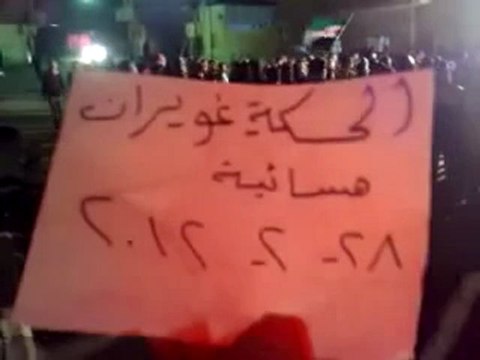 الحسكة غويران
مسائية
٢٨ - ٢ - ٢٠١٢